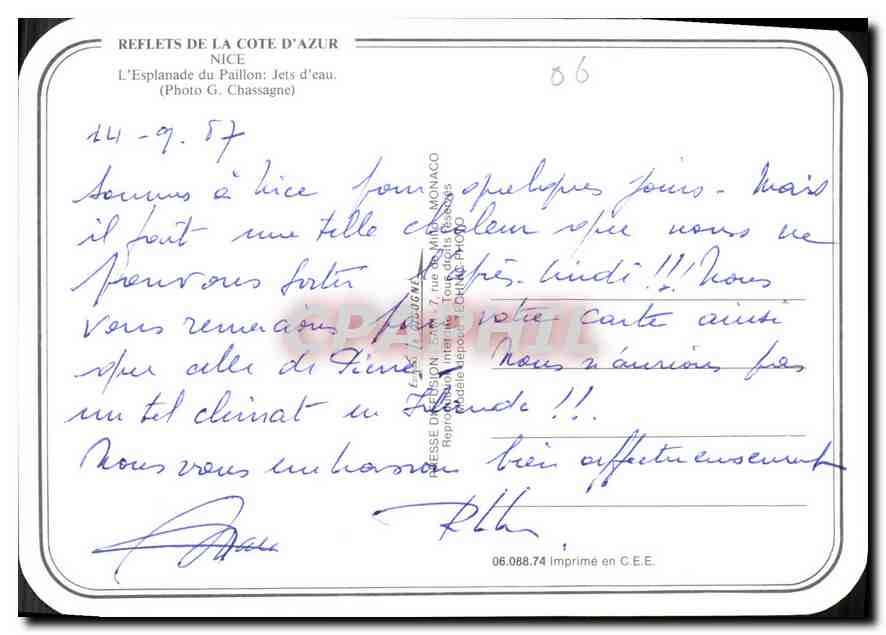 REFLETS DE LA COTE D'AZUR
NICE
L'Esplanade du Paillon: Jets d'eau.
(Photo G. Chassagne)
06
14-9.87
Sommes à Nice pour quelques jours - Mais
il fait une telle chaleur que nous ne
pouvons sortir l'après-midi!!! Nous
vous remercions pour votre carte ainsi
que celle de Pierre - Nous n'aurions pas
un tel climat en Irlande!!.
Nous vous embrassons bien affectueusement
Editions La CIGOGNE
PRESSE DIFFUSION - 7, rue de - MONACO
Reproduction interdite - Tous droits réservés
Modèle déposé TECHNIC-PHOTO
CPAPHIL
06.088.74 Imprimé en C.E.E.